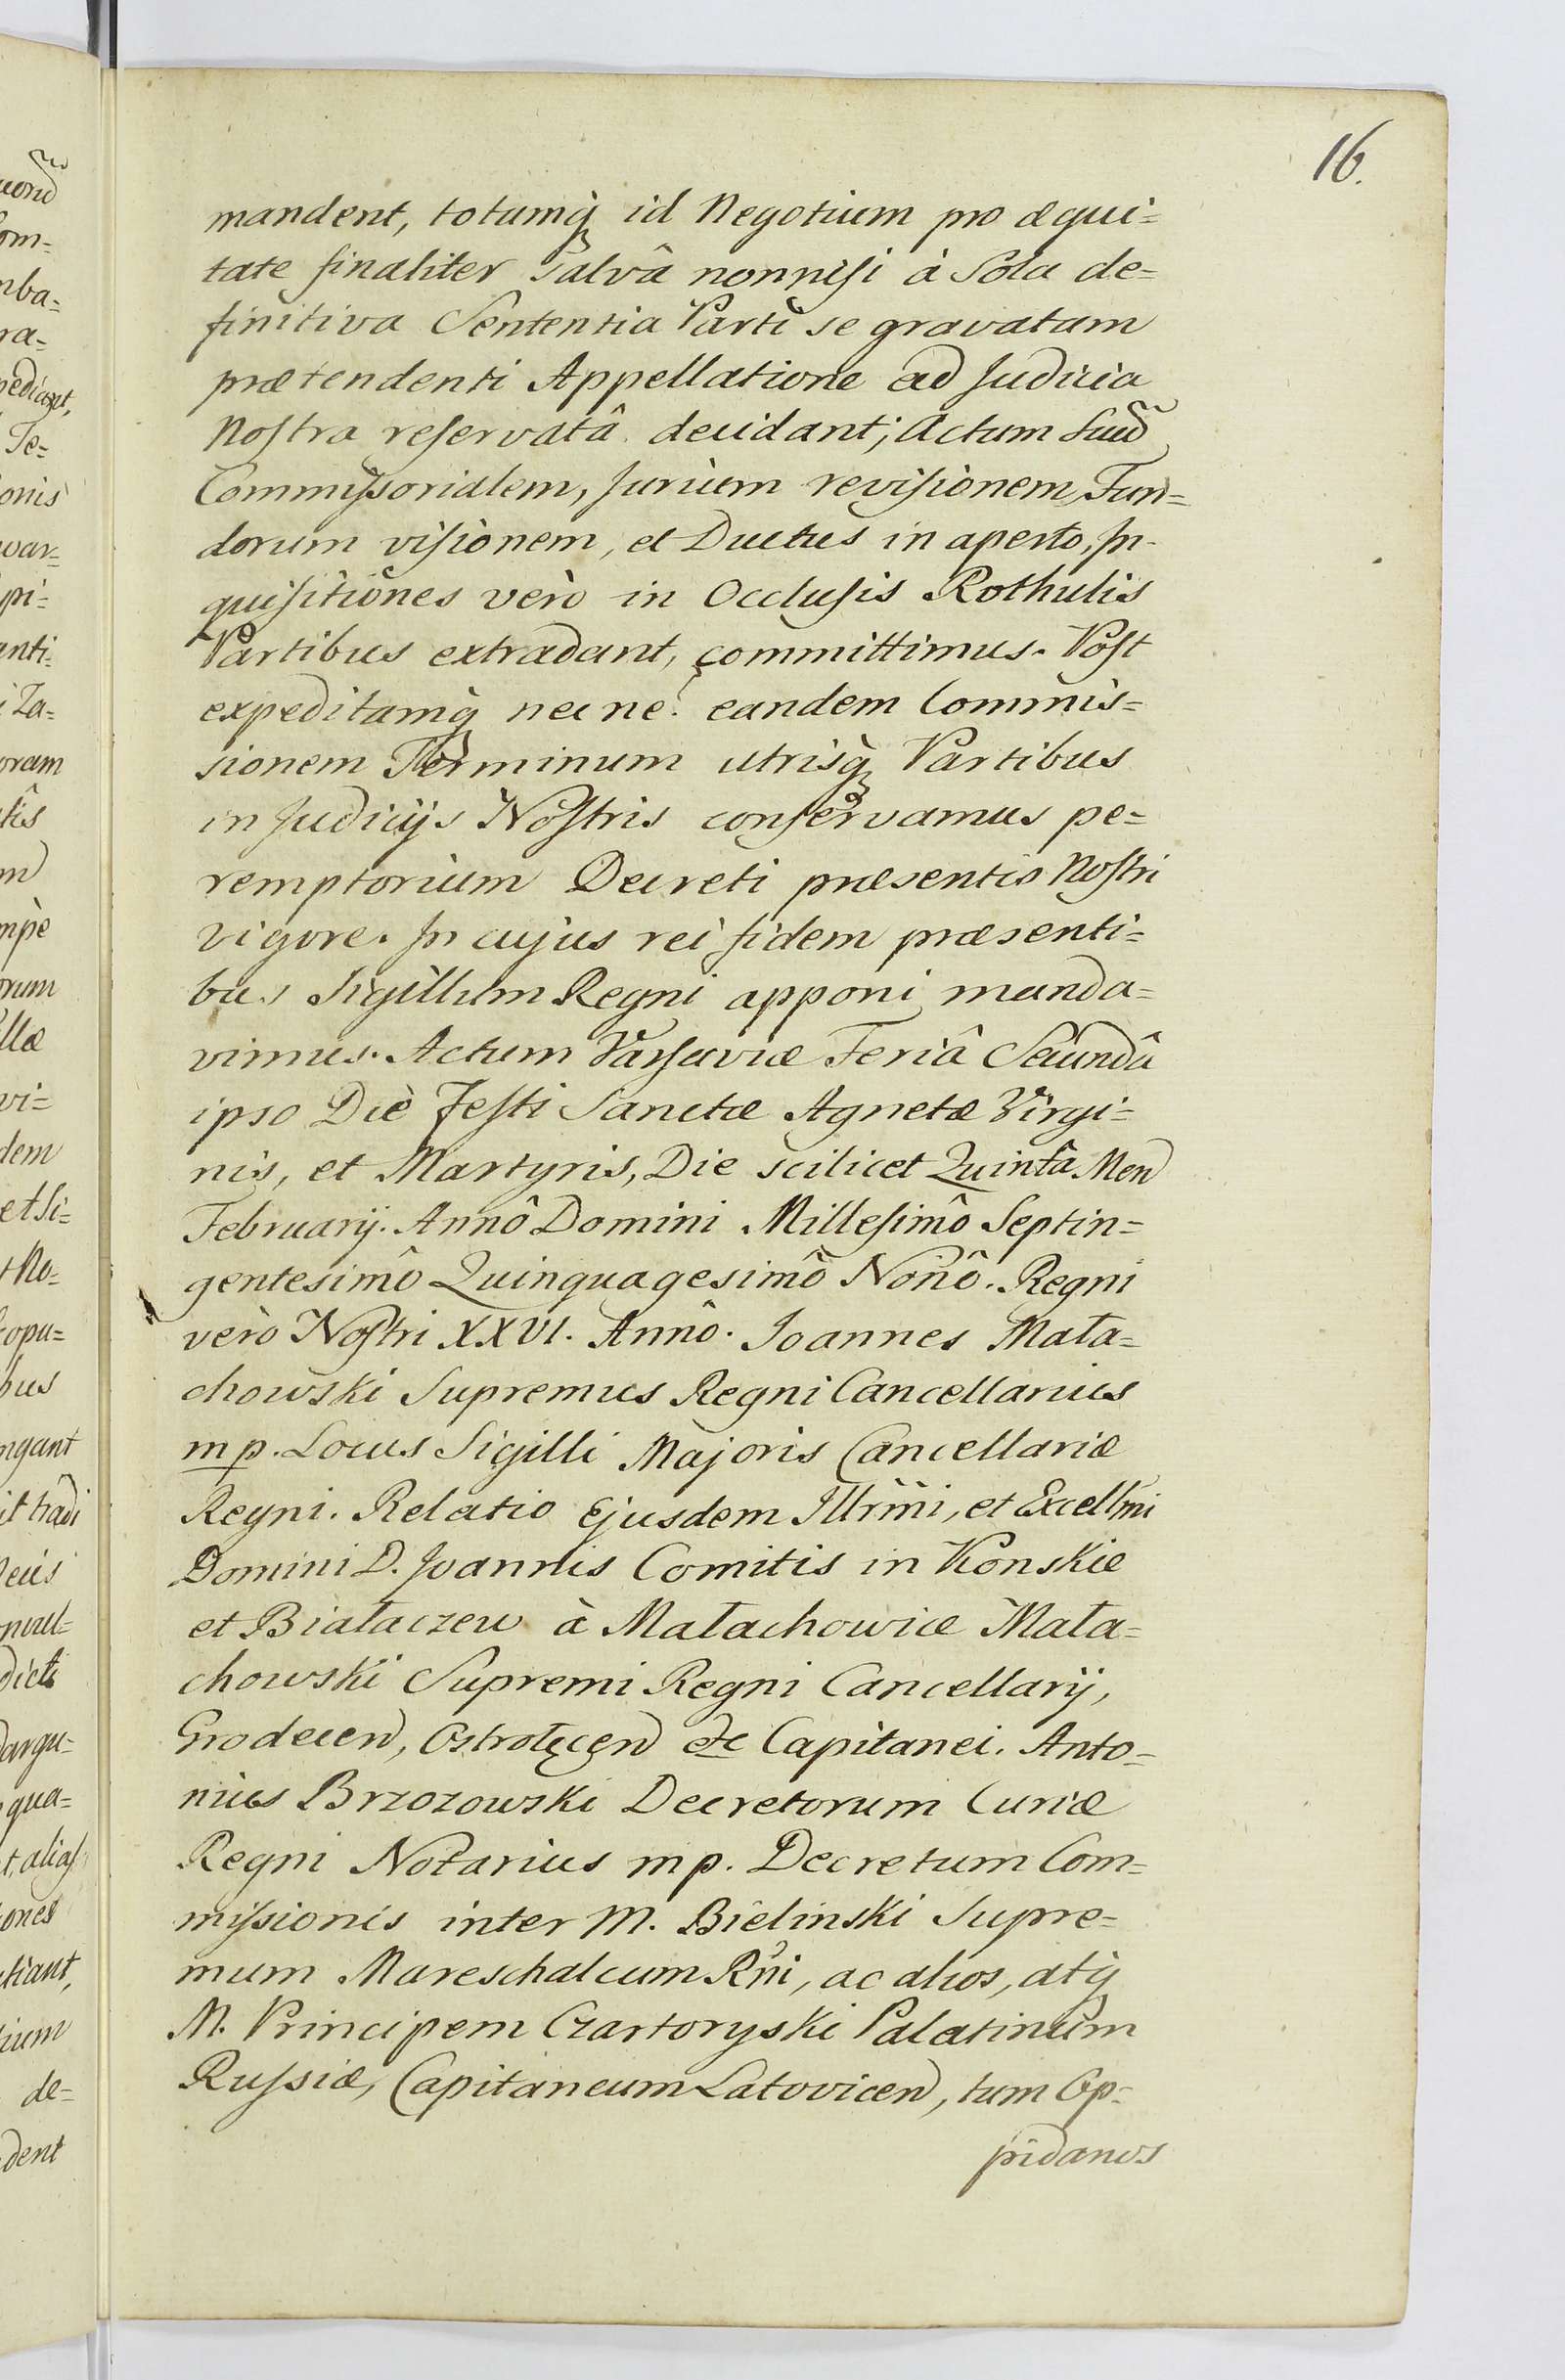 16.
mandent, totumq́ id Negotium pro æqui=
tate finaliter salvâ nonnisi à Sola de=
finitiva Sententia Parti se gravatam
prætendenti Appellatione ad Judicia
Nostra reservatâ decidant; Actum Suũ
Commissorialem, Jurium revisionem, Fun=
dorum visionem, et Ductus in aperto, In-
quisitiones verò in Occlusis Rothulis
Partibus extradant, committimus. Post
expeditamq́ nec ne? eandem Commis=
sionem Terminum utrisq́ Partibus
in Judicijs Nostris conservamus pe=
remptorium Decreti præsentis Nostri
vigore. In cujus rei fidem præsenti=
bus Sigillum Regni apponi manda=
vimus. Actum Varsaviæ Feriâ Secundâ
ipso Die Festi Sanctæ Agnetæ Virgi=
nis, et Martyris, Die scilicet Quintâ Men
Februarij. Annô Domini Millesimô Septin=
gentesimô Quinquagesimô Nonô. Regni
verò Nostri XXVI. Annô. Joannes Mała=
chowski Supremus Regni Cancellarius
mp. Locus Sigilli Majoris Cancellariæ
Regni. Relatio Ejusdem Illrm̃i, et Excellm̃i
Domini D. Joannis Comitis in Konskie
et Białaczew à Małachowice Mała=
chowski Supremi Regni Cancellarij,
Grodecen, Ostrołęcen etc Capitanei. Anto=
nius Brzozowski Decretorum Curiæ
Regni Notarius mp. Decretum Com=
missionis inter M. Bielinski Supre=
mum Mareschalcum Rñi, ac alios, atq́
M. Principem Czartoryski Palatinum
Russiæ, Capitaneum Latovicen, tum Op=
pidanos